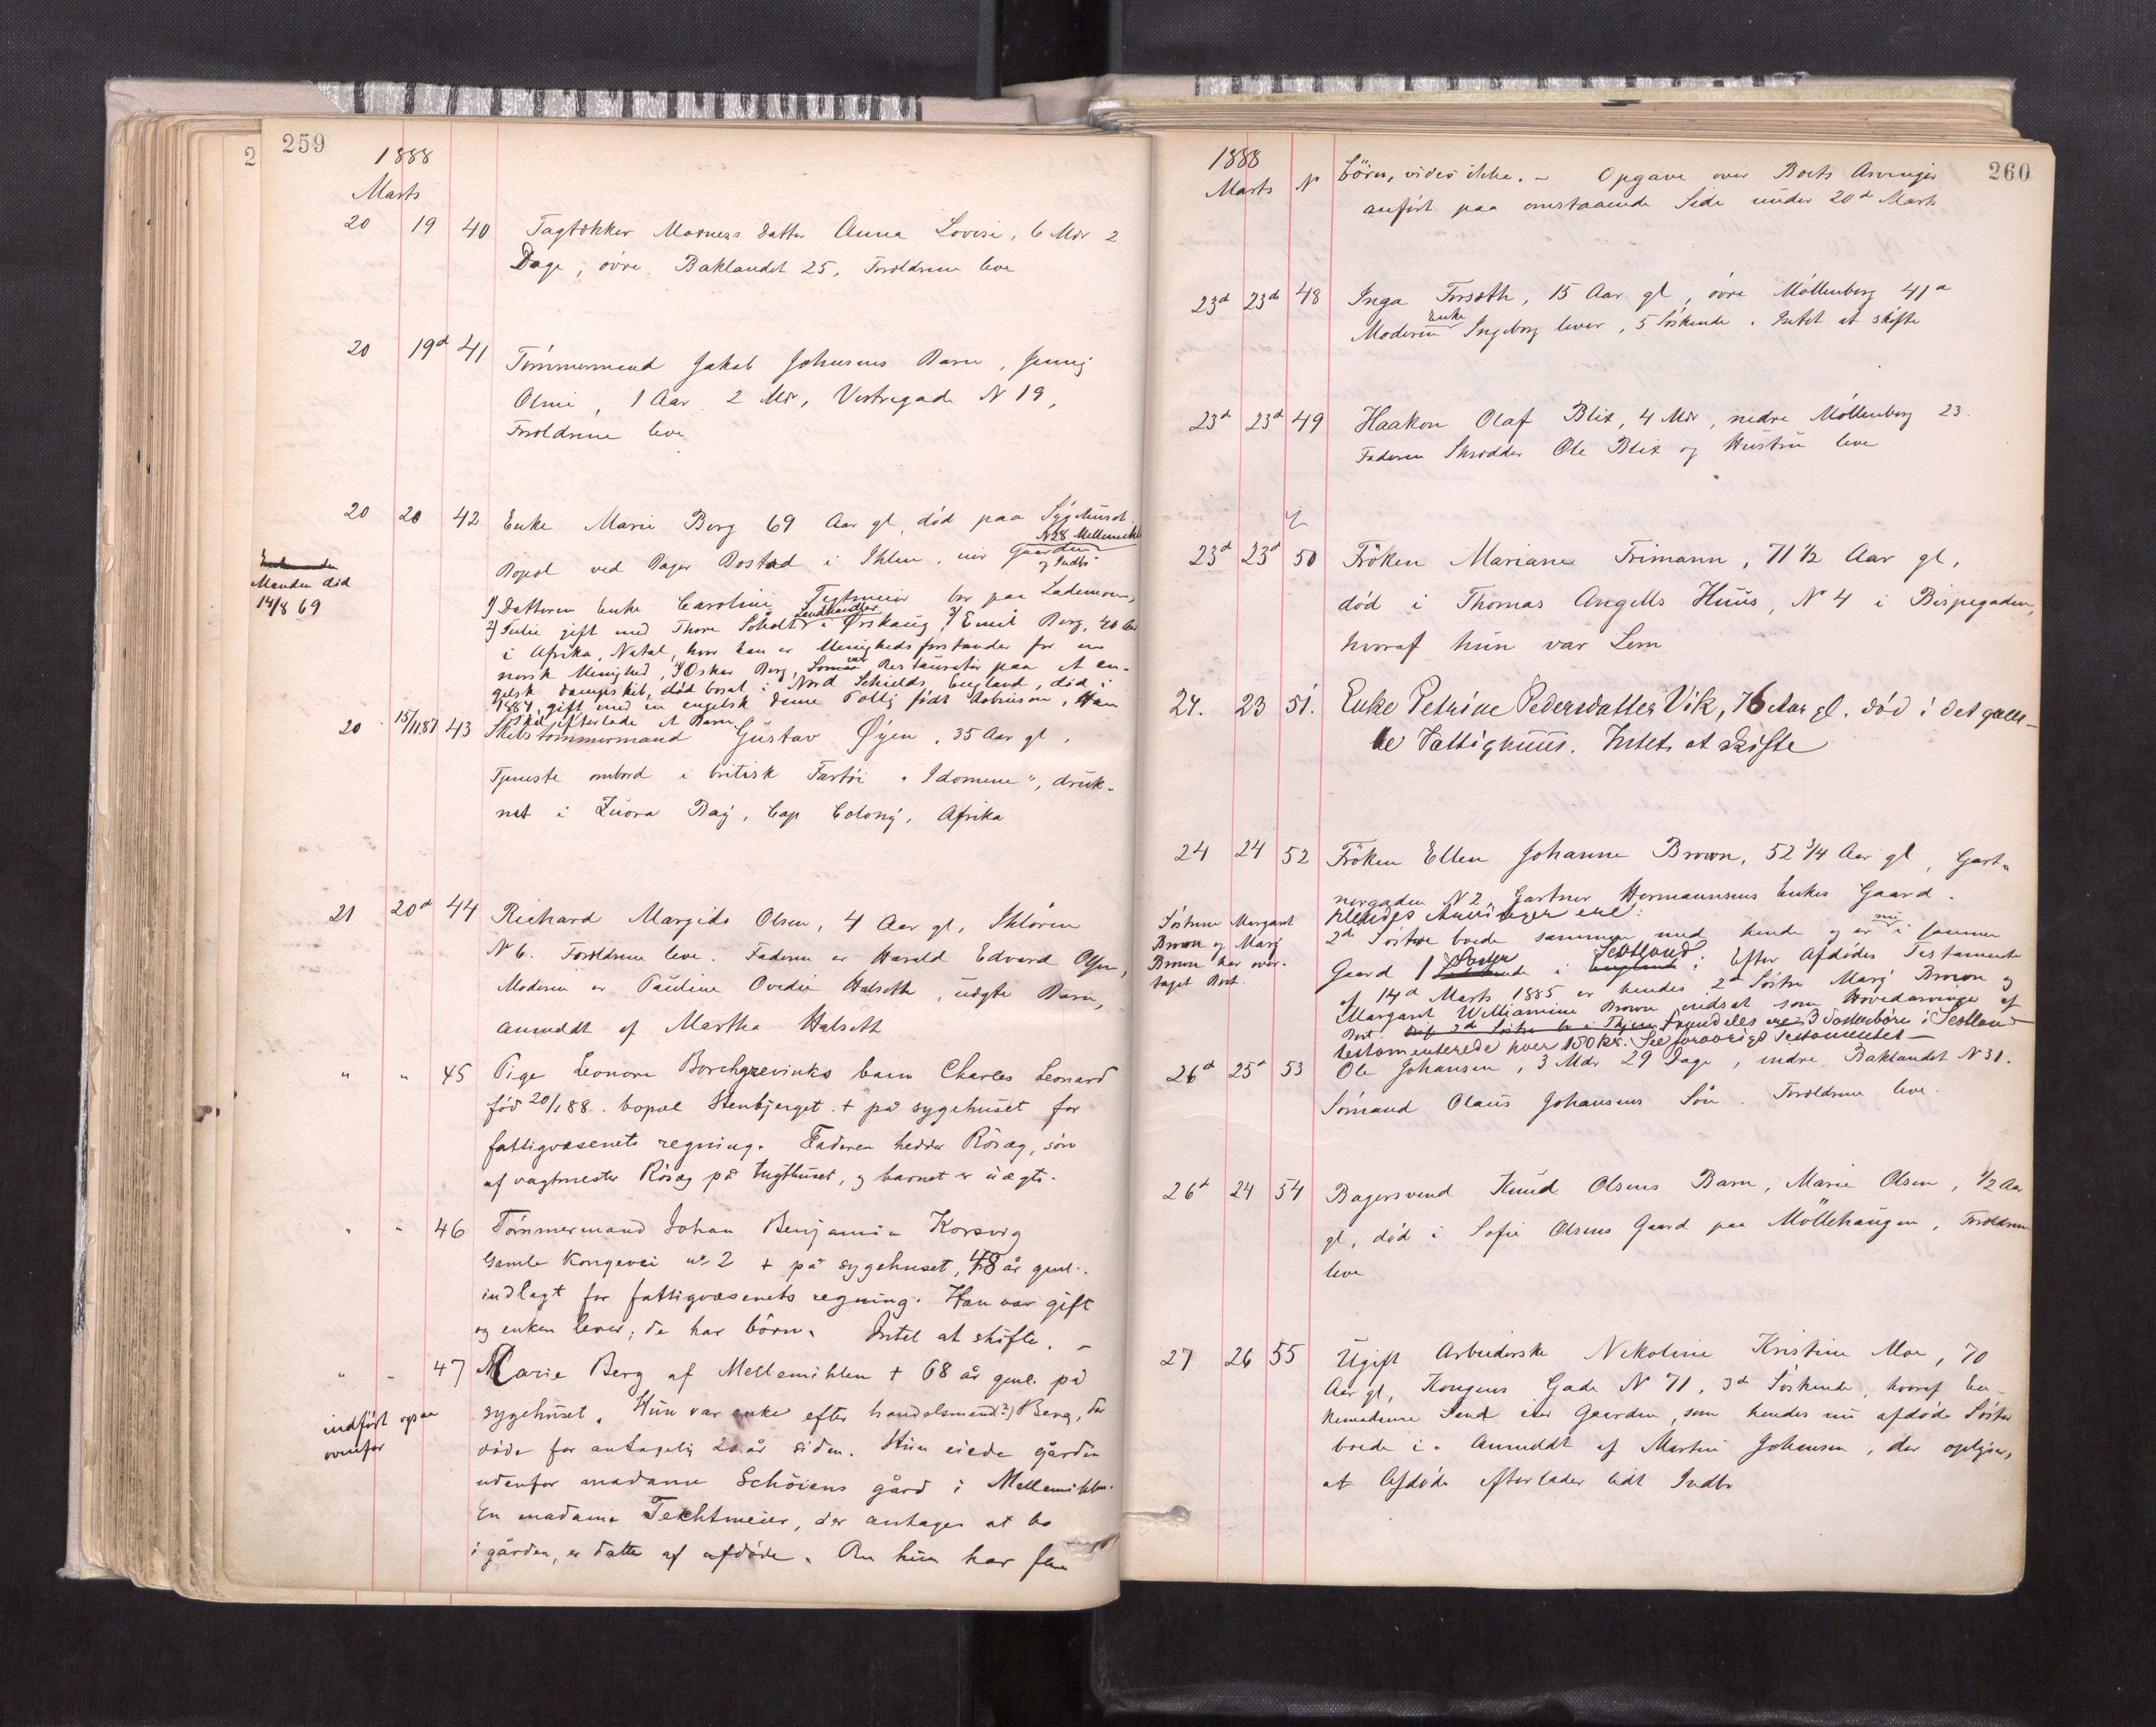 259
1888
Marts
20 19 40 Tagtækker Moxness datter Anna Lovise, 6 Mdr 2
Dage, övre Baklandet 25, Forældrene leve
20 19d 41 Tømmermand Jakob Johnsens Barn, Jenny
Olmie, 1 Aar 2 Mdr, Vestregade N 19,
Forældrene leve
20 20 42 Enke Marie Berg 69 Aar gl, död paa Sygehuset.
N28 Mellemihle
Bopæl ved Bager Bostad i Ihlen, eier Gaarden
og Indbo
Manden död
14/8 69
1) Datteren Enke Caroline Tegtmeier bor paa Lademoen,
2) Julie gift med Thore Scholt Landhandler i Ørskaug, 3) Emil Berg, 40 Aar
i Afrika, Natal, hvor han er Menighedsforstander for en
norsk Menighed, 4) Oskar Berg, var Restauratör paa et en-
gelsk Dampskib, död bosat i Nord Schields England, död i
1887, gift med en engelsk Dame Polly född Robinson, Han
skal efterlade et Barn.
20 15/11 87 43 Skibstömmermand Gustav Øyen, 35 Aar gl,
Tjeneste ombord i britisk Fartöi "Idomene", druk-
net i Zuora Bay, Cap Colony, Afrika
21 20d 44 Richard Margido Olsen, 4 Aar gl, Ihlören
N 6. Forældrene leve. Faderen er Harald Edvard Olsen,
Moderen er Pauline Ovedie Halseth, uægte Barn,
anmeldt af Martha Halseth
" " 45 Pige Leonore Borchgrevinks barn Charles Leonard
fød 20/1 88. bopæl Stenbjerget. + på sygehuset for
fattigvæsenets regning. Faderen hedder Rösæg, sön
af vagtmester Rösæg på tugthuset, og barnet er uægte.
" " 46 Tömmermand Johan Benjamin Korsvig
Gamle Kongevei no 2 + på sygehuset, 48 år gml.
indlagt for fattigvæsenets regning. Han var gift
og enken lever; de har börn. Intet at skifte. –
" - 47 Marie Berg af Mellemihlen + 68 år gml. på
indfört ogsaa
ovenfor
sygehuset. Hun var enke efter handelsmand(?) Berg, der
döde for antagelig 20 år siden. Hun eiede gården
udenfor madame Schöiens gård i Mellemihlen.
En madame Tekhtmeier, der antages at bo
i gården, er datter af afdöde. Om hun har flere
260
1888
Marts N Börn, vides ikke. – Opgave over Boets Arvinger
anfört paa omstaaende Side under 20de Marts
23d 23de 48 Inga Forseth, 15 Aar gl, övre Möllenberg 41a
Enke
Moderen Ingeborg lever, 5 Söskende. Intet at skifte
23d 23d 49 Haakon Olaf Blix, 4 Mdr, nedre Möllenberg 23.
Faderen Skrædder Ole Blix og Hustru leve
23d 23d 50 Fröken Mariane Frimann, 71 1/2 Aar gl,
död i Thomas Angells Huus, No 4 i Bispegaden,
hvoraf hun var Lem
24. 23 51. Enke Petrine Pedersdatter Vik, 76 Aar gl. död i det gam-
le Fattighuus. Intet at skifte
24 24 52 Fröken Ellen Johanne Brown, 52 3/4 Aar gl, Gart-
nergaden N 2, Gartner Hermannsens Enkes Gaard.
Hendes Arvinger ere:
Söstrene Margaret
Brown og Mary
Brown har over-
taget Boet.
2de Söstre boede sammen med hende og er nu i samme
Gaard 1 Söster i Scotland; Efter Afdödes Testamente
af 14de Marts 1885 er hendes 2de Söstre Mary Brown og
Margaret Williamine Brown indsat som Hovedarvinge af
Boet. Fremdeles er 3 Sösterbörn i Scotland
testamenterede hver 150 Kr. See forövrigt Testamentet –
26d 25d 53 Ole Johansen, 3 Mdr 29 Dage, nedre Baklandet N 31.
Sömand Olaus Johansens Sön. Forældrene leve.
26d 24 54 Bagersvend Knud Olsens Barn, Marie Olsen, 1/2 Aar
gl, död i Sofie Olsens Gaard paa Möllehaugen, Forældrene
leve
27 26 55 Ugift Arbeiderske Nekoline Kristine Moe, 70
Aar gl, Kongens Gade N 71, 3de Söskende, hvoraf
eier Gaarden, som hendes nu afdöde Söster
boede i. Anmeldt af Martin Johansen, der oplyser,
at Afdöde efterlader lidt Indbo